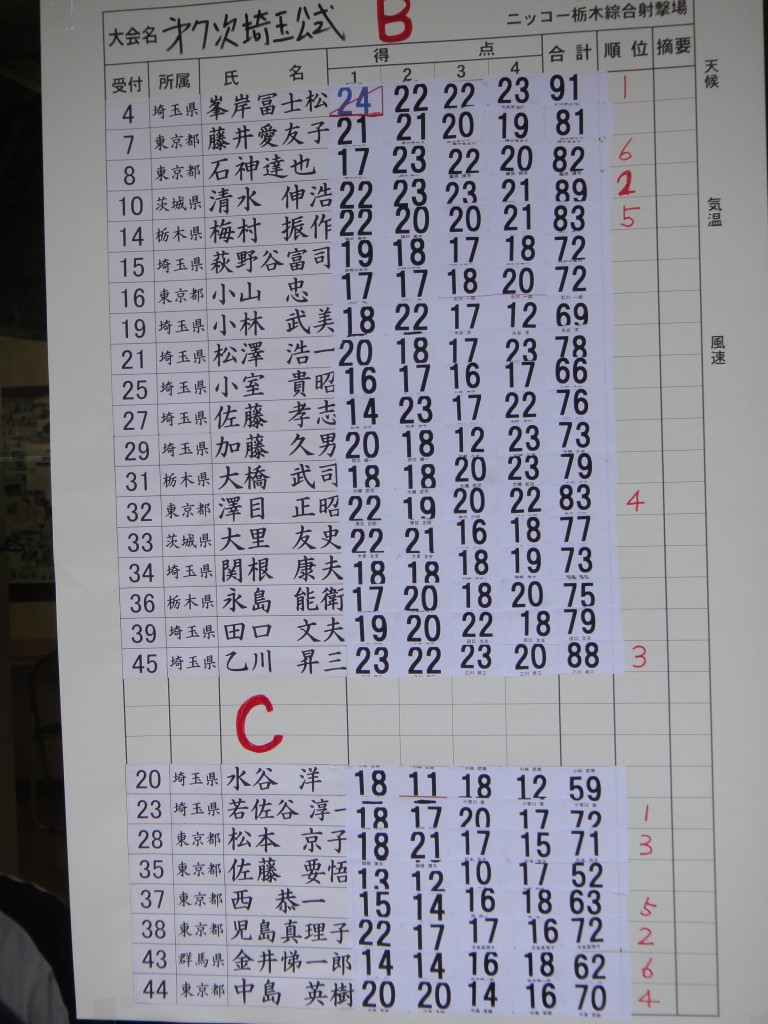 大会名 第7次埼玉公式 B ニッコー栃木綜合射撃場
受付 所属 氏 名 得 点 合計 順位 摘要
1 2 3 4
4 埼玉県 峯岸冨士松 24 22 22 23 91 1
7 東京都 藤井愛友子 21 21 20 19 81
8 東京都 石神達也 17 23 22 20 82 6
10 茨城県 清水 伸浩 22 23 23 21 89 2
14 栃木県 梅村 振作 22 20 20 21 83 5
15 埼玉県 萩野谷富司 19 18 17 18 72
16 東京都 小山 忠 17 17 18 20 72
19 埼玉県 小林 武美 18 22 17 12 69
21 埼玉県 松澤 浩一 20 18 17 23 78
25 埼玉県 小室 貴昭 16 17 16 17 66
27 埼玉県 佐藤 孝志 14 23 17 22 76
29 埼玉県 加藤 久男 20 18 12 23 73
31 栃木県 大橋 武司 18 18 20 23 79
32 東京都 澤目 正昭 22 19 20 22 83 4
33 茨城県 大里 友史 22 21 16 18 77
34 埼玉県 関根 康夫 18 18 18 19 73
36 栃木県 永島 能衛 17 20 18 20 75
39 埼玉県 田口 文夫 19 20 22 18 79
45 埼玉県 乙川 昇三 23 22 23 20 88 3
C
20 埼玉県 水谷 洋 18 11 18 12 59
23 埼玉県 若佐谷淳一 18 17 20 17 72 1
28 東京都 松本 京子 18 21 17 15 71 3
35 東京都 佐藤 要悟 13 12 10 17 52
37 東京都 西 恭一 15 14 16 18 63 5
38 東京都 児島真理子 22 17 17 16 72 2
43 群馬県 金井悌一郎 14 14 16 18 62 6
44 東京都 中島 英樹 20 20 14 16 70 4
天候
気温
風速